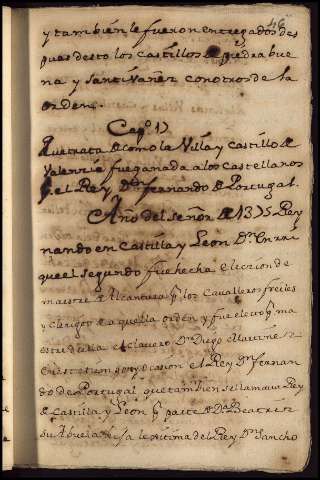 46
y tambien le fueron entregados des
pues desto los castillos de piedra bue
na y santivañez con otros de la
orden.
Capº 17
Que trata de como la Villa y castillo de
Valencia fue ganada a los castellanos
pr el Rey Dn fernando de Portugal.
Año del señor de 1375 Rey
nando en castilla y Leon Dn Enrri
que el segundo fue hecha eleccion de
maestre de Alcantara pr los cavalleros freiles
y clerigos de aquella orden y fue electo pr ma
estre della el clavero Dn Diego Martinez
En este tiempo y ocasion el Rey Dn fernan
do de Portugal que tambien se llamava Rey
de Castilla y Leon pr parte de Da Beatriz
su Abuela hija lexitima del Rey Dn Sancho